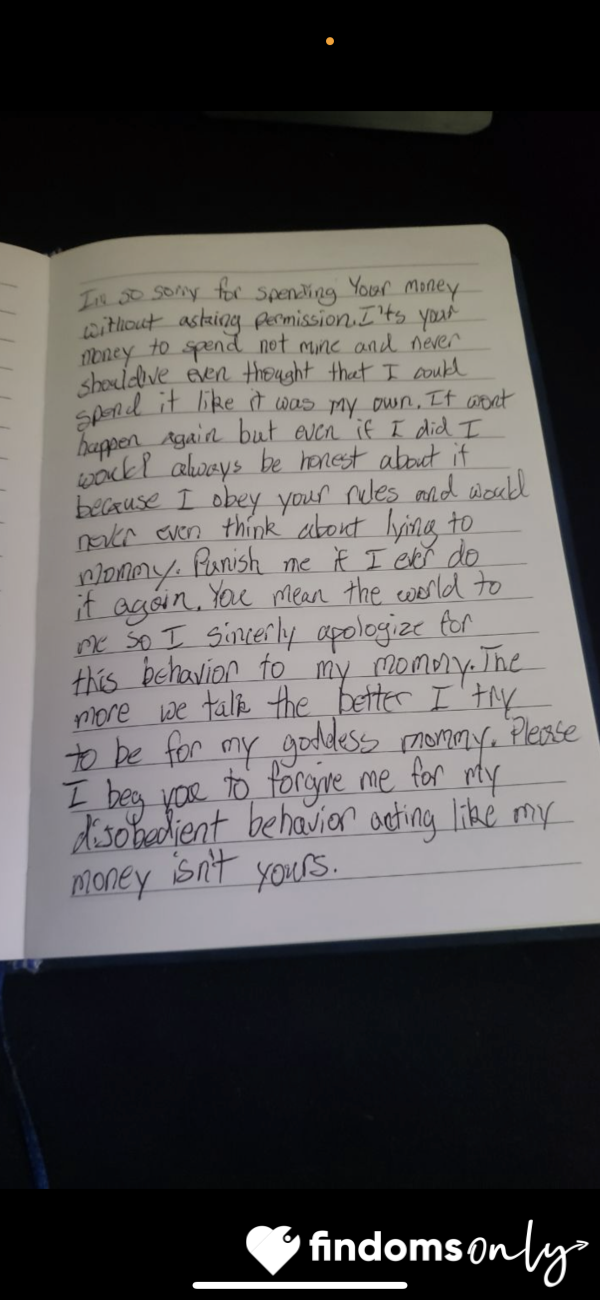 I'm so sorry for spending Your money
without asking permission. I'ts your
money to spend not mine and never
should'ive even thought that I could
spend it like it was my own. It wont
happen again but even if I did I
would always be honest about it
because I obey your rules and would
never even think about lying to
Mommy. Punish me if I ever do
it again. You mean the world to
me so I sincerly apologize for
this behavior to my mommy. The
more we talk the better I try
to be for my goddess mommy. Please
I beg you to forgive me for my
disobedient behavior acting like my
money isn't yours.
findomsonly